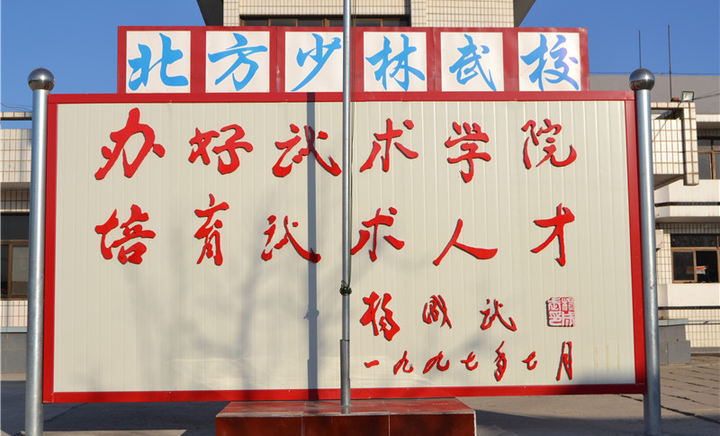 北方少林武校
办好武术学院
培育武术人才
杨成武
一九九七年七月